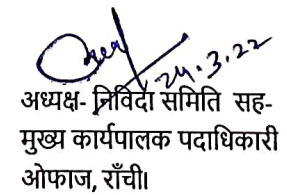 24.3.22
अध्यक्ष- निविदा समिति सह-
मुख्य कार्यपालक पदाधिकारी
ओफाज, राँची।